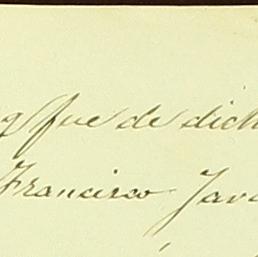 q fue de dich
Francisco Jav